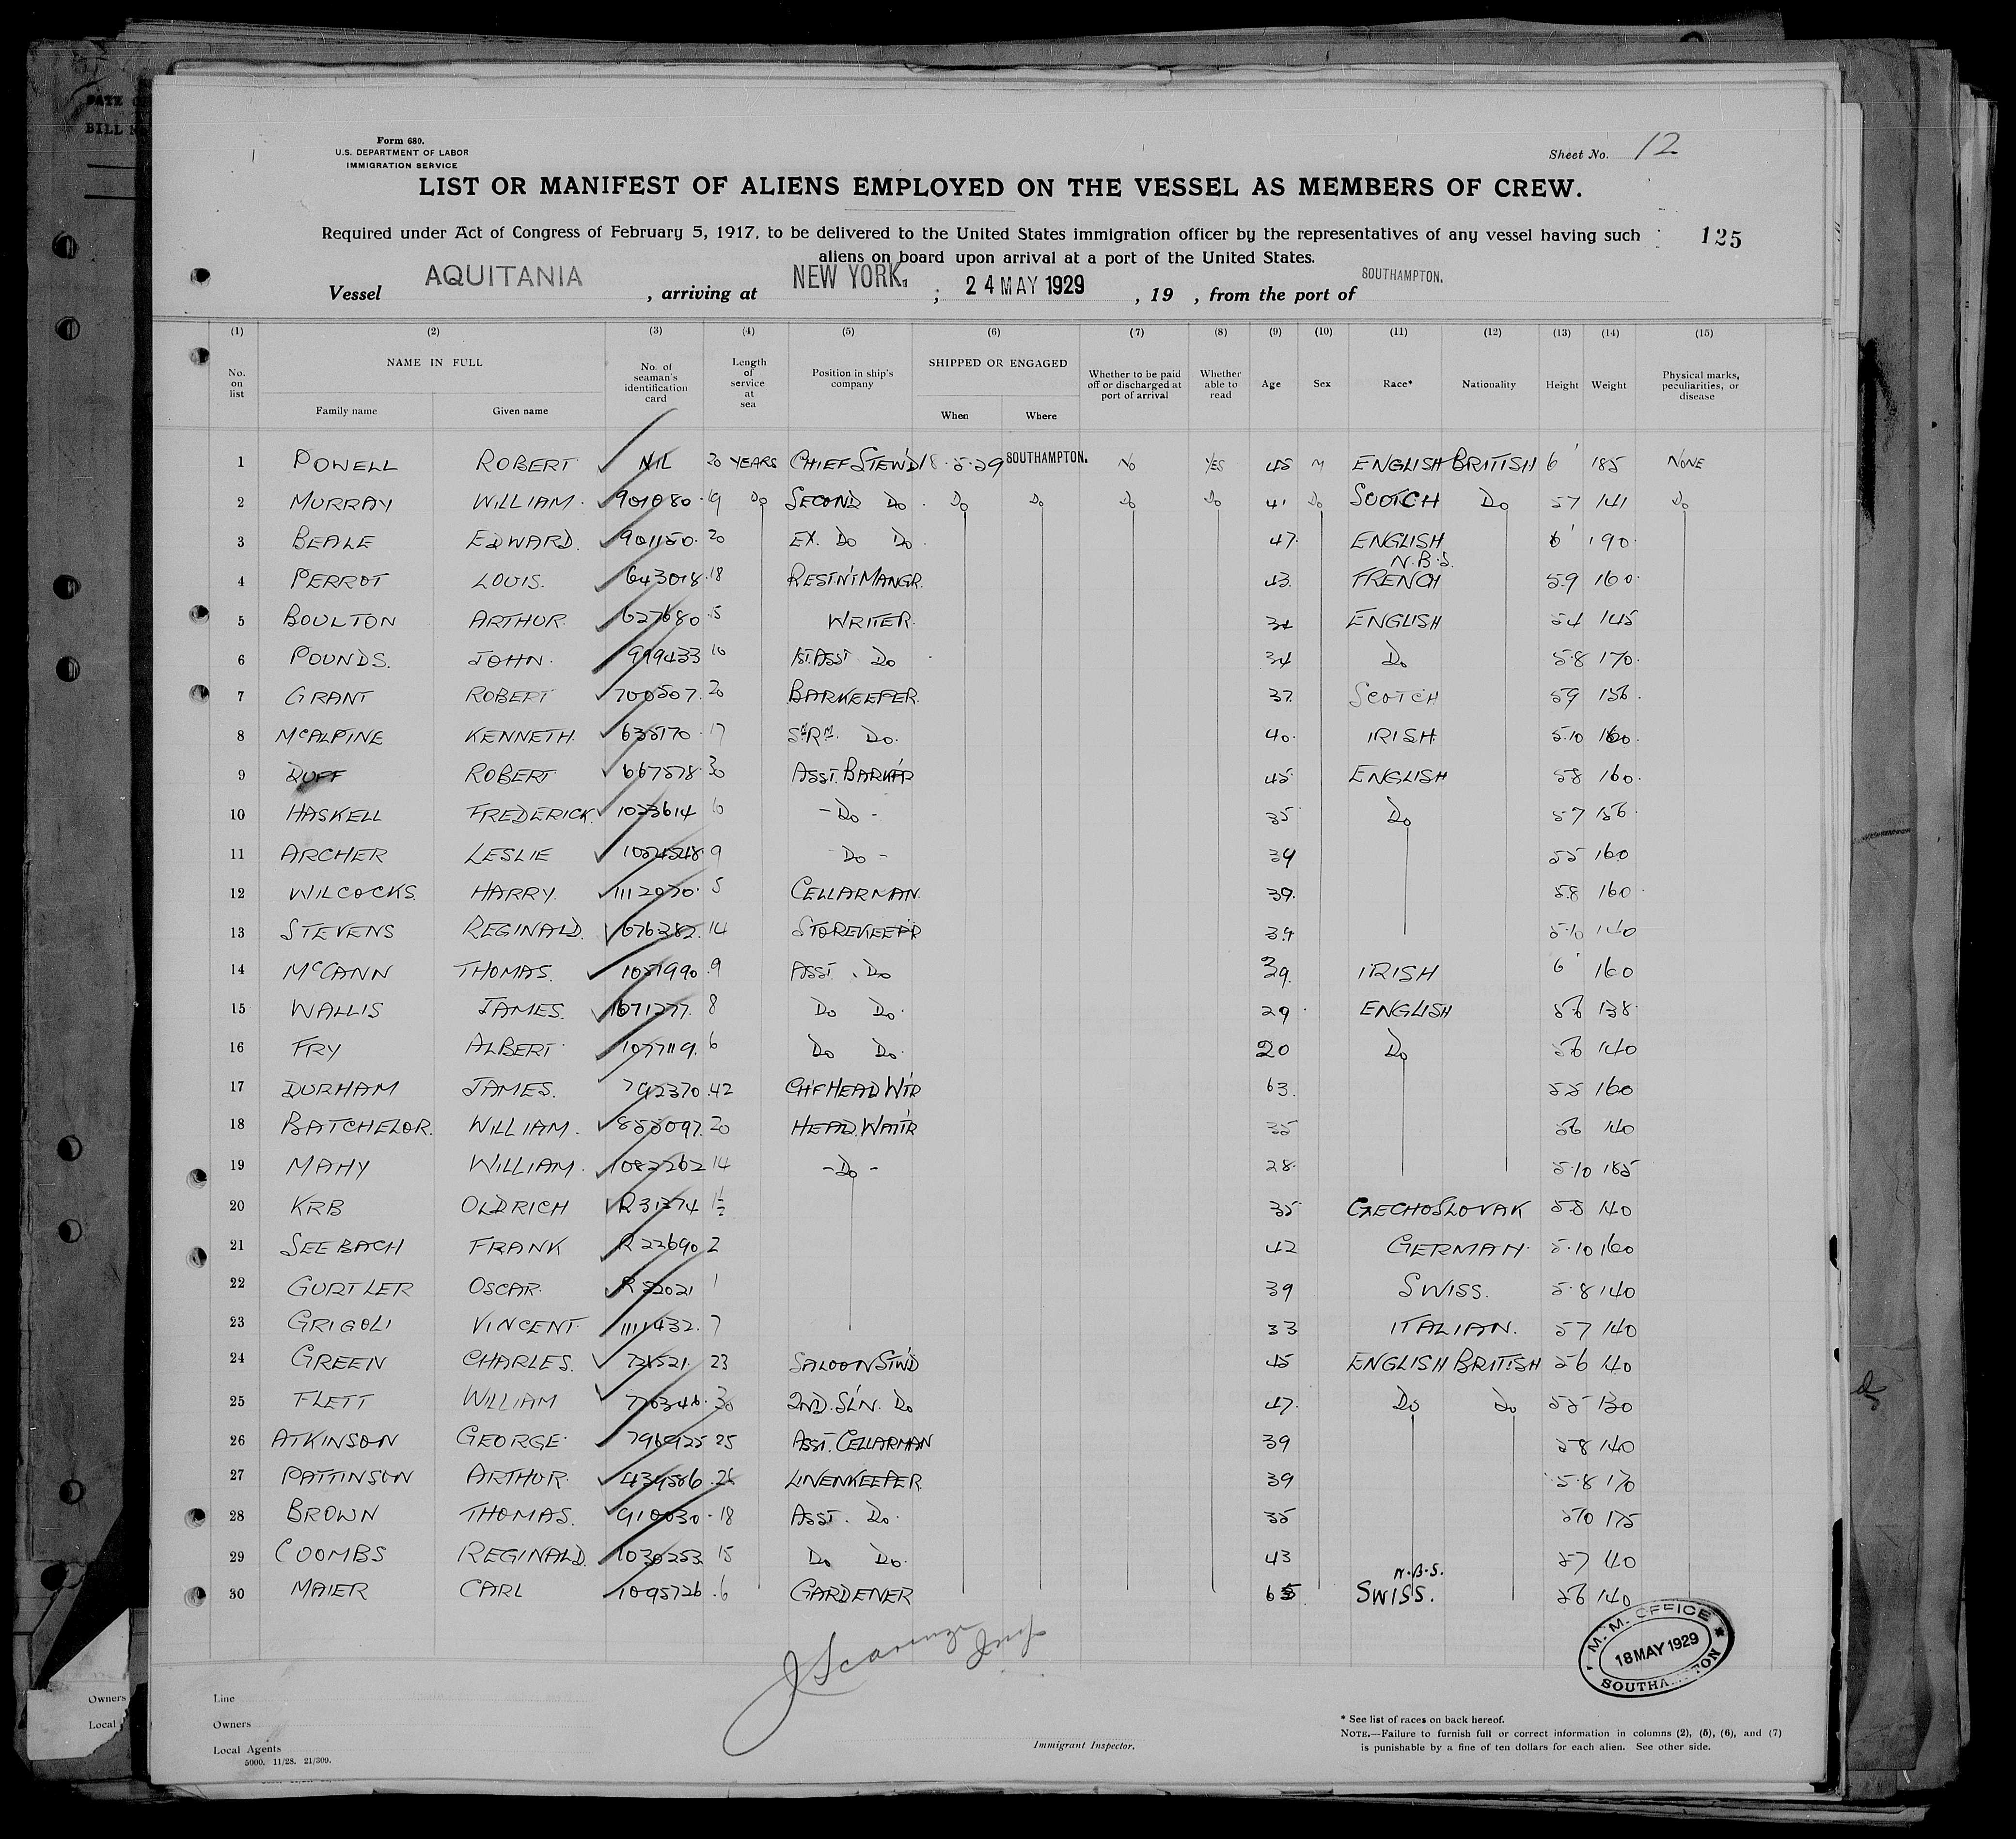 DATE O
BILL
Form 680.
U.S. DEPARTMENT OF LABOR
IMMIGRATION SERVICE
Sheet No. 12
LIST OR MANIFEST OF ALIENS EMPLOYED ON THE VESSEL AS MEMBERS OF CREW.
Required under Act of Congress of February 5, 1917, to be delivered to the United States immigration officer by the representatives of any vessel having such
aliens on board upon arrival at a port of the United States.
125
Vessel AQUITANIA , arriving at NEW YORK. ; 24 MAY 1929 , 19 , from the port of SOUTHAMPTON.
(1) (2) (3) (4) (5) (6) (7) (8) (9) (10) (11) (12) (13) (14) (15)
No. on list NAME IN FULL Family name Given name No. of seaman's identification card Length of service at sea Position in ship's company SHIPPED OR ENGAGED When Where Whether to be paid off or discharged at port of arrival Whether able to read Age Sex Race* Nationality Height Weight Physical marks, peculiarities, or disease
1 POWELL ROBERT NIL 20 YEARS CHIEF STEW'D 18.5.29 SOUTHAMPTON. NO YES 45 M ENGLISH BRITISH 6' 185 NONE
2 MURRAY WILLIAM. 901080 19 Do SECOND Do Do Do Do Do 41 Do SCOTCH Do 57 141 Do
3 BEALE EDWARD. 901150 20 EX. Do Do 47 ENGLISH 6' 190
N.B.S.
4 PERROT LOUIS. 643018 18 REST'NT MANGR. 43 FRENCH 5.9 160
5 BOULTON ARTHUR. 627680 5 WRITER. ENGLISH 54 145
6 POUNDS. JOHN. 999433 10 1ST. ASST Do 34 Do 5.8 170
7 GRANT ROBERT 700507 20 BARKEEPER. 37 SCOTCH 59 156
8 McALPINE KENNETH. 635170 17 SM. RM. Do. 40 IRISH 5.10 160
9 DUFF ROBERT 667578 30 ASST. BARK'P'R 45 ENGLISH 58 160
10 HASKELL FREDERICK. 1023614 10 - Do - 35 Do 57 156
11 ARCHER LESLIE 1054548 9 Do - 39 55 160
12 WILCOCKS HARRY. 1112070 5 CELLARMAN. 39. 5.8 160
13 STEVENS REGINALD. 676282 14 STOREKEEP'R 39 5.10 140
14 McCANN THOMAS. 1051990 9 ASST. Do 39. IRISH 6' 160
15 WALLIS JAMES. 1071277 8 Do Do. 29 ENGLISH 56 138
16 FRY ALBERT 1077119 6 Do Do. 20 Do 56 140
17 DURHAM JAMES. 792370 42 CH'F HEAD WT'R 63 55 160
18 BATCHELOR. WILLIAM. 855097 20 HEAD. WAIT'R 35 56 140
19 MAHY WILLIAM. 1082262 14 - Do - 28 5.10 185
20 KRB OLDRICH R31374 1½ 35 CZECHOSLOVAK 58 140
21 SEEBACH FRANK R 22690 2 42 GERMAN 5.10 160
22 GURTLER OSCAR. R 52021 1 39 SWISS. 5.8 140
23 GRIGOLI VINCENT. 1111432 7 33 ITALIAN. 57 140
24 GREEN CHARLES. 721521 23 SALOON ST'W'D 45 ENGLISH BRITISH 56 140
25 FLETT WILLIAM 776346 30 2ND. SLN. Do 47 Do Do 55 130
26 ATKINSON GEORGE. 796925 25 ASST. CELLARMAN 39 58 140
27 PATTINSON ARTHUR. 439586 26 LINENKEEPER 39 5.8 170
28 BROWN THOMAS. 910030 18 ASST. Do. 35 510 175
29 COOMBS REGINALD. 1030253 15 Do Do. 43 57 140
N.B.S.
30 MAIER CARL 1095726 6 GARDENER 65 SWISS. 56 140
M. M. OFFICE
18 MAY 1929
SOUTHA TON
Line
Owners
Local Agents
5000. 11/28. 21/309.
Immigrant Inspector.
* See list of races on back hereof.
NOTE.—Failure to furnish full or correct information in columns (2), (5), (6), and (7)
is punishable by a fine of ten dollars for each alien. See other side.
Owners
Local